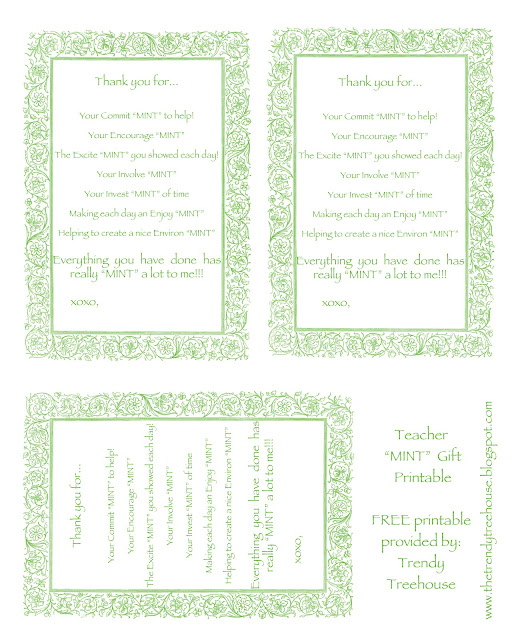 Thank you for...
Your Commit “MINT” to help!
Your Encourage “MINT”
The Excite “MINT” you showed each day!
Your Involve “MINT”
Your Invest “MINT” of time
Making each day an Enjoy “MINT”
Helping to create a nice Environ “MINT”
Everything you have done has
really “MINT” a lot to me!!!
xoxo,
Thank you for...
Your Commit “MINT” to help!
Your Encourage “MINT”
The Excite “MINT” you showed each day!
Your Involve “MINT”
Your Invest “MINT” of time
Making each day an Enjoy “MINT”
Helping to create a nice Environ “MINT”
Everything you have done has
really “MINT” a lot to me!!!
xoxo,
Thank you for...
Your Commit “MINT” to help!
Your Encourage “MINT”
The Excite “MINT” you showed each day!
Your Involve “MINT”
Your Invest “MINT” of time
Making each day an Enjoy “MINT”
Helping to create a nice Environ “MINT”
Everything you have done has
really “MINT” a lot to me!!!
xoxo,
Teacher
“MINT” Gift
Printable
FREE printable
provided by:
Trendy
Treehouse
www.thetrendytreehouse.blogspot.com